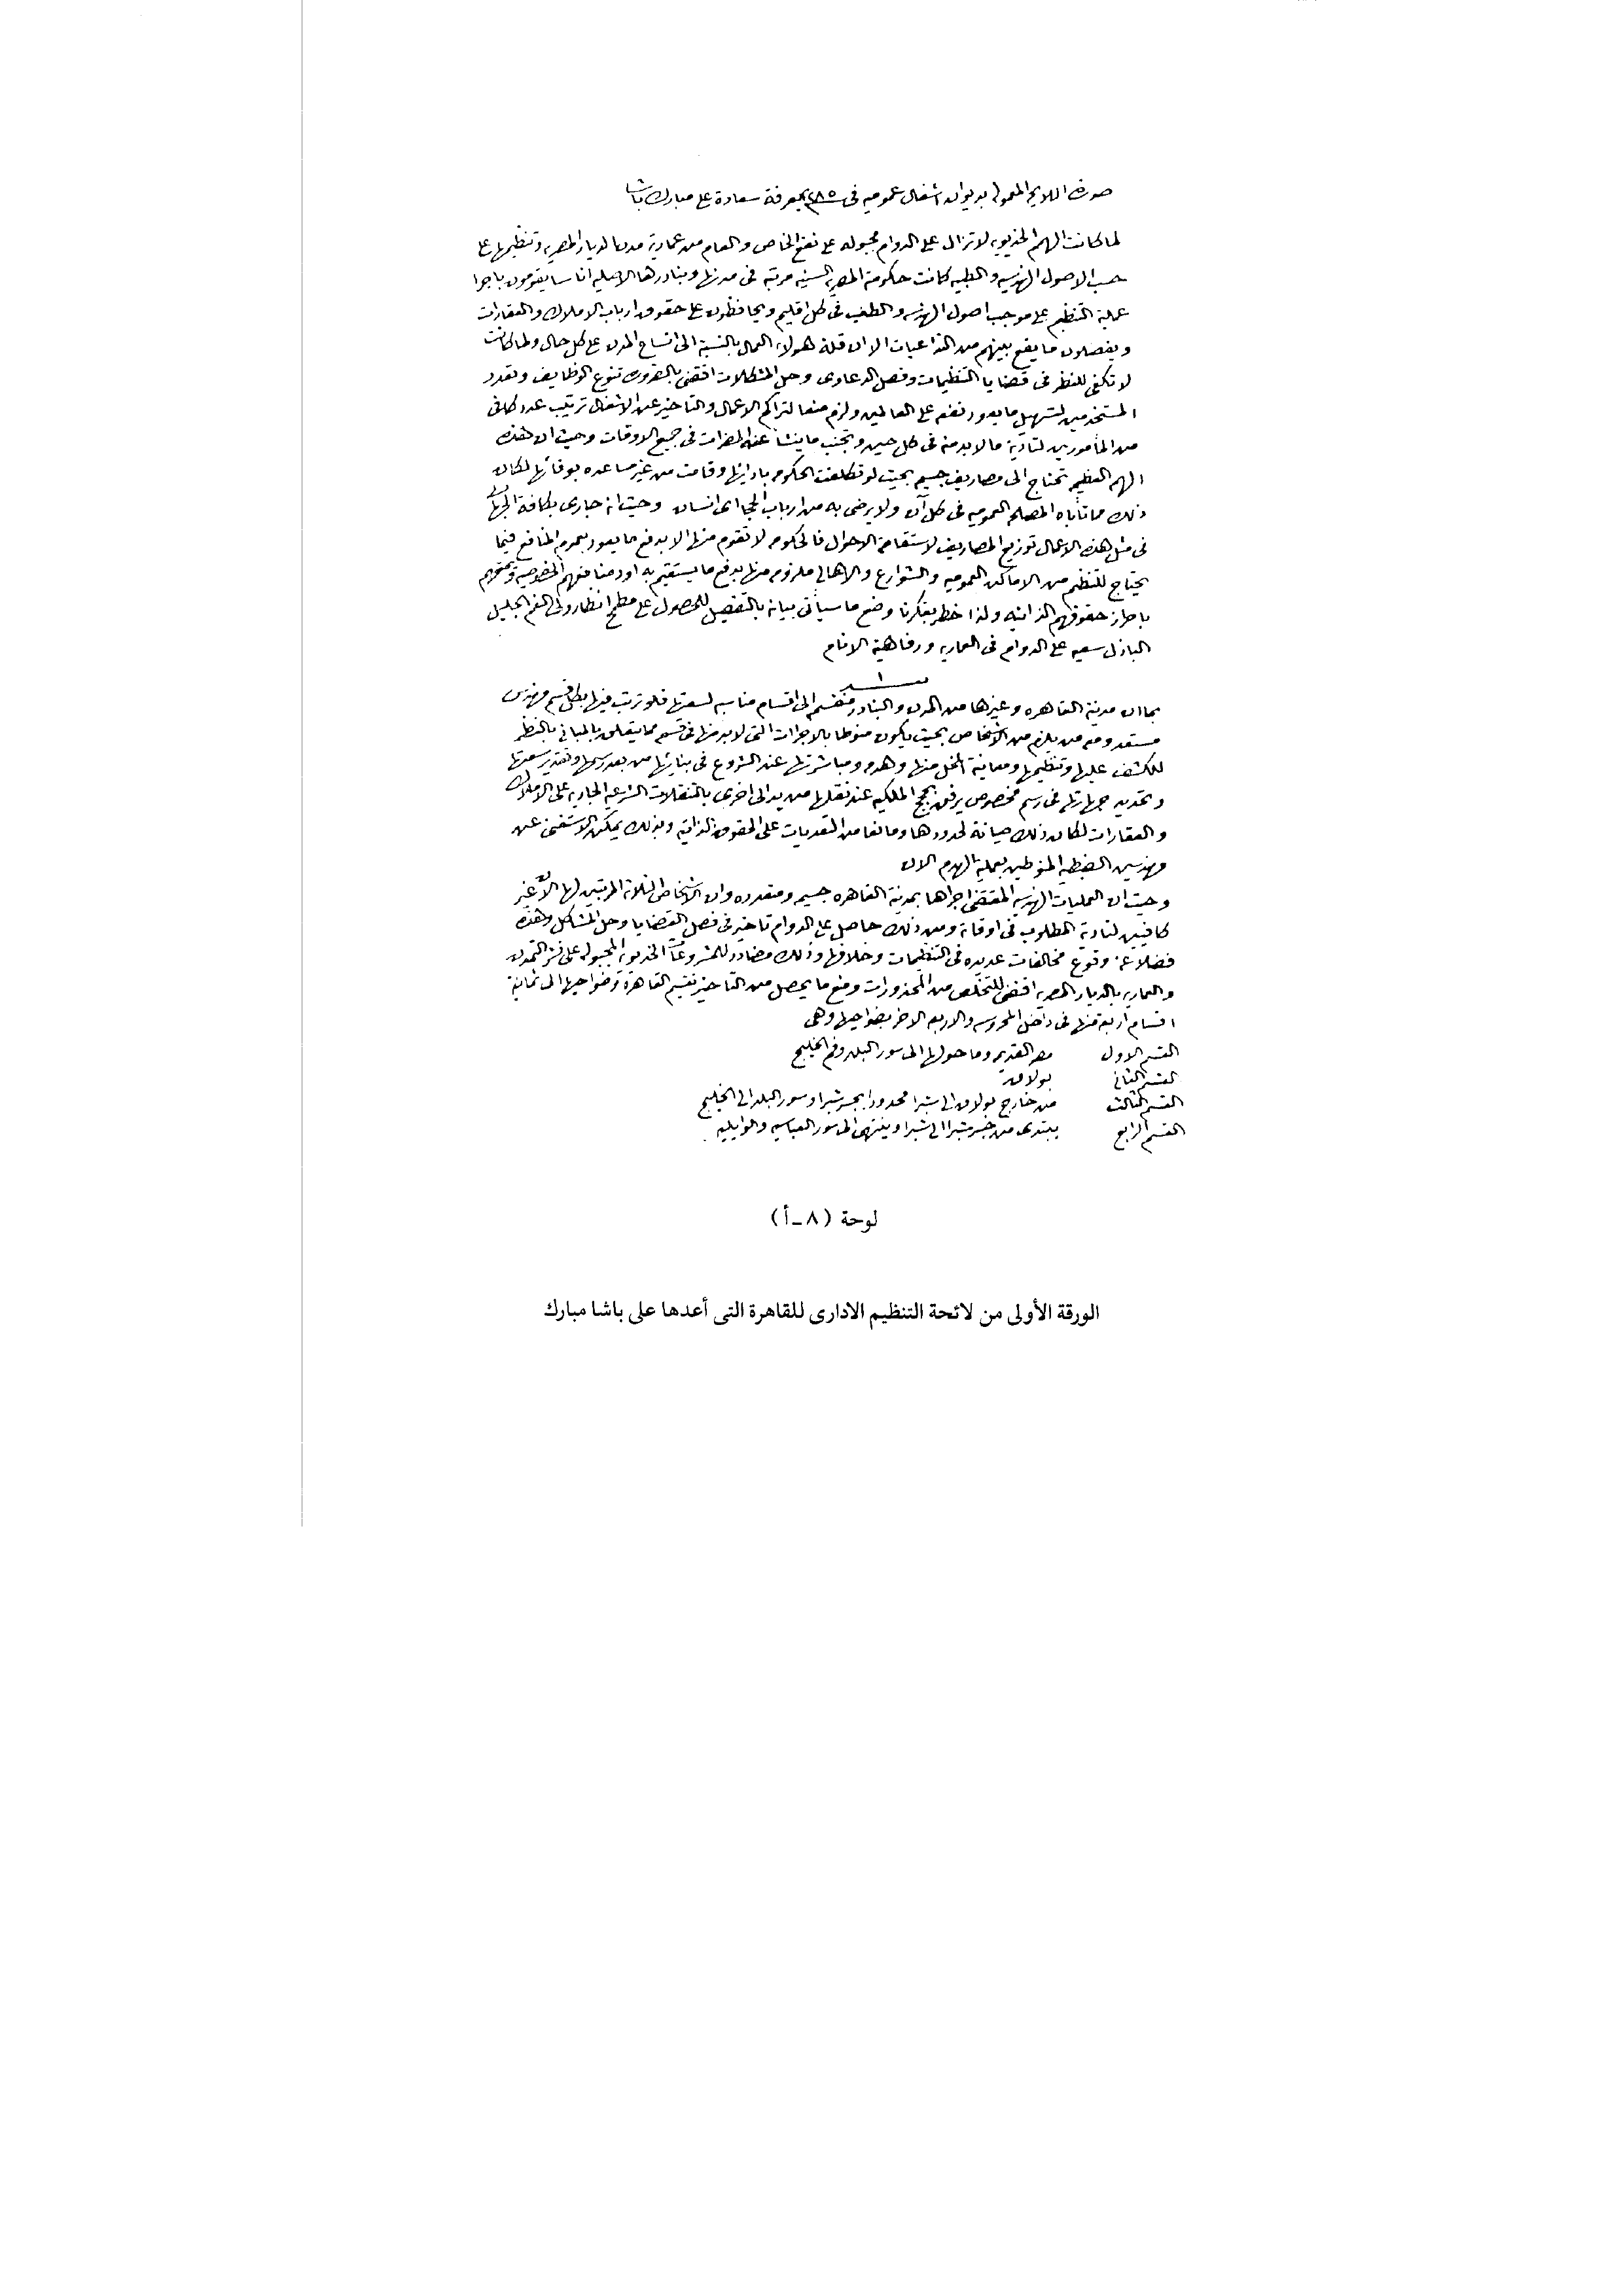 صورة اللايحه المعموله بديوان اشغال عموميه فى ١٢٨٥ بمعرفة سعادة على مبارك باشا
لما كانت الهمم الخديويه لا تزال على الدوام مجبوله على نفع الخاص والعام من عمارية مدن الديار المصريه وتنظيمها على
حسب الاصول الهندسيه والطبيه كانت حكومة المصريه السنيه مرتبه فى مدنها وبنادرها الاصليه اناسا يقومون باجرا
عملية التنظيم على موجب اصول الهندسه والطب فى كل اقليم ويحافظون على حقوق ارباب الاملاك والعقارات
ويفصلون ما يقع بينهم من التداعيات الا ان قلة هولاء العمال بالنسبة الى اتساع المدن على كل حال ولما كانت
لا تكفى للنظر فى قضايا التنظيمات وفصل الدعاوى وحل المشكلات اقتضى بالضروره تنوع الوظايف وتعدد
المستخدمين لتسهيل ما يعود نفعه على العالمين ولزم منعا لتراكم الاعمال والتاخير عن الاشغال ترتيب عدد كافى
من المأمورين لتادية ما لا بد منه فى كل حين وتجنب ما ينشا عنه المضرات فى جميع الاوقات وحيث ان هذه
الهمم العظيمه تحتاج الى مصاريف جسيمه بحيث لو تكلفت الحكومه بادائها وقامت من غير مساعده بوفائها لكان
ذلك مما تأباه المصلحه العموميه فى كل آن ولا يرضى به من ارباب الحجا اى انسان وحيث انه جارى بكافة الجهات
فى مثل هذه الاعمال توزيع المصاريف لاستقامة الاحوال فالحكومه لا تقوم منها الا بدفع ما يعود بعموم المنافع فيما
يحتاج للتنظيم من الاماكن العموميه والشوارع والاهالى ملزومه منها بدفع ما يستقيم به اود منافعهم الخصوصيه وتمتعهم
باحراز حقوقهم الذاتيه ولذا خطر بفكرنا وضع ما سيأتى بيانه بالتفصيل للحصول على مطمح انظار ولى النعم الجليل
الباذل سعيه على الدوام فى العماريه ورفاهية الانام
بند ١
بما ان مدينة القاهره وغيرها من المدن والبنادر منقسم الى اقسام مناسبه لسعتها فلو ترتب فيها بكل قسم مهندس
مستعد ومعه من يلزم من الاشخاص بحيث يكون منوطا بالاجرات التى لا بد منها فى قسمه مما يتعلق بالمبانى بالنظر
للكشف عليها وتنظيمها ومعاينة المخل منها وهدمه ومباشرتها عند الشروع فى بنائها من بعد رسمها وتقدير سعتها
وتحديد جهاتها فى رسم مخصوص يرفق بحجج الملكيه عند نقلها من يد الى اخرى بالتنقلات الشرعيه الجاريه على الاملاك
والعقارات لكان ذلك صيانة لحدودها ومانعا من التعديات على الحقوق الذاتيه وبذلك يمكن الاستغنى عن
مهندسين الضبطيه المنوطين بعملية الهدم الان
وحيث ان العمليات الهندسيه المقتضى اجراها بمدينة القاهره جسيمه ومتعدده وان الاشخاص الثلاثة المرتبين لها الآن غير
كافيين لتادية المطلوب فى اوقاته ومن ذلك حاصل على الدوام تاخير فى فصل القضايا وحل المشاكل وهذه
فضلا عن وقوع مخالفات عديده فى التنظيمات وخلافها وذلك مضادد للمشروعات الخديويه المجبوله على نشر التمدن
والعماريه بالديار المصريه اقتضى للتخلص من المحذورات ومنع ما يحصل من التاخير تقسيم القاهرة وضواحيها الى ثمانية
اقسام اربعة منها فى داخل المحروسه والاربعه الاخر بضواحيها وهى
القسم الاول مصر القديمه وما حولها الى سور البلد وفم الخليج
القسم الثانى بولاق
القسم الثالث من خارج بولاق الى شبرا محدودا بجسر شبرا وسور البلد الى الخليج
القسم الرابع يبتدى من جسر شبرا الى شبرا وينتهى الى سور العباسيه والوايليه
لوحة (٨ـأ)
الورقة الأولى من لائحة التنظيم الادارى للقاهرة التى أعدها على باشا مبارك